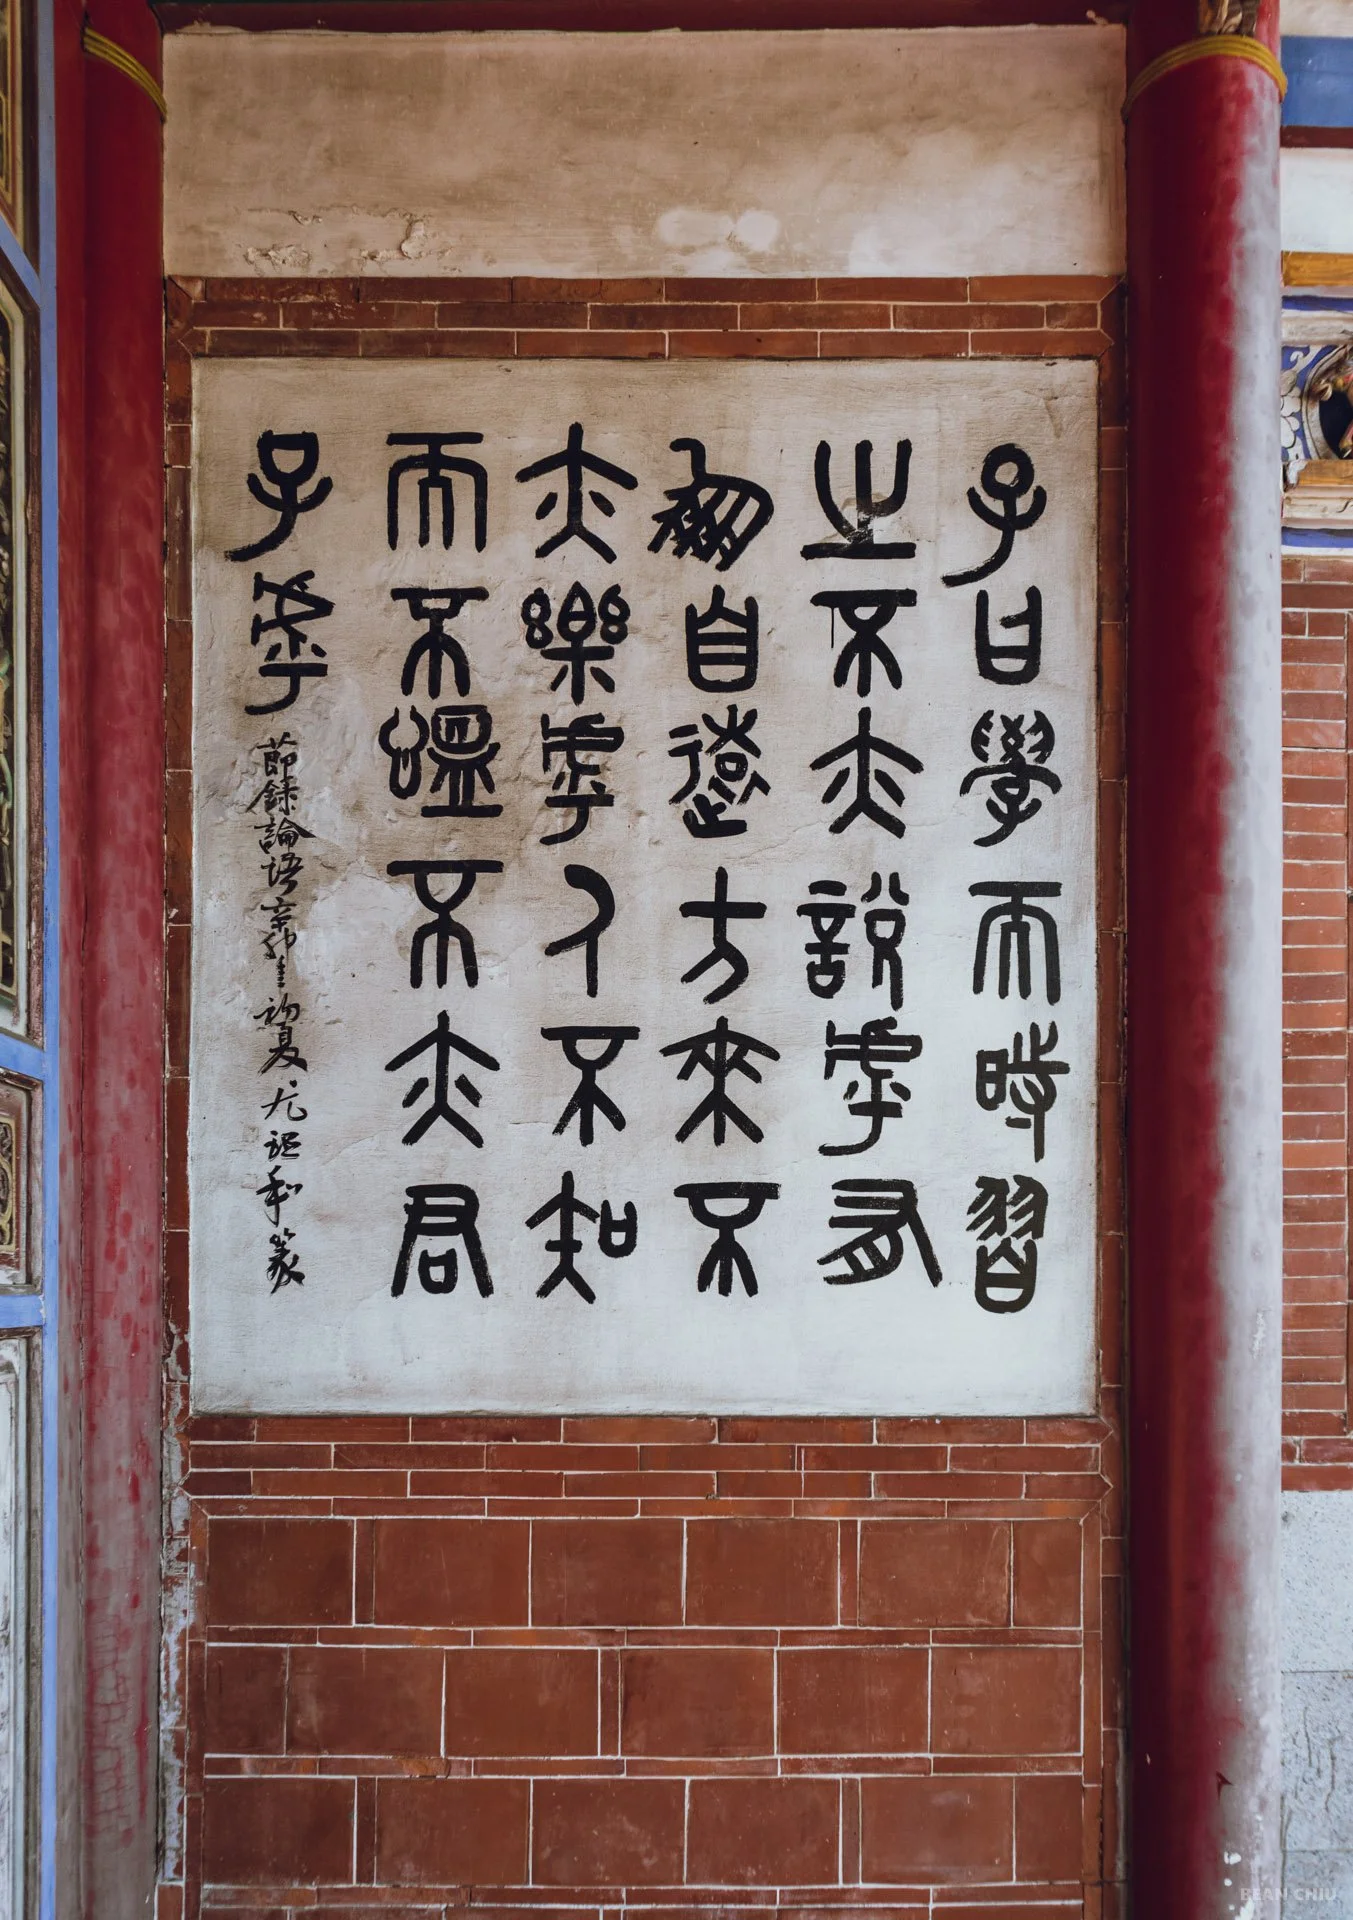 子曰學而時習
之不亦說乎有
朋自遠方來不
亦樂乎人不知
而不慍不亦君
子乎
節錄論語辛卯年初夏尤和篆
BEAN CHIU